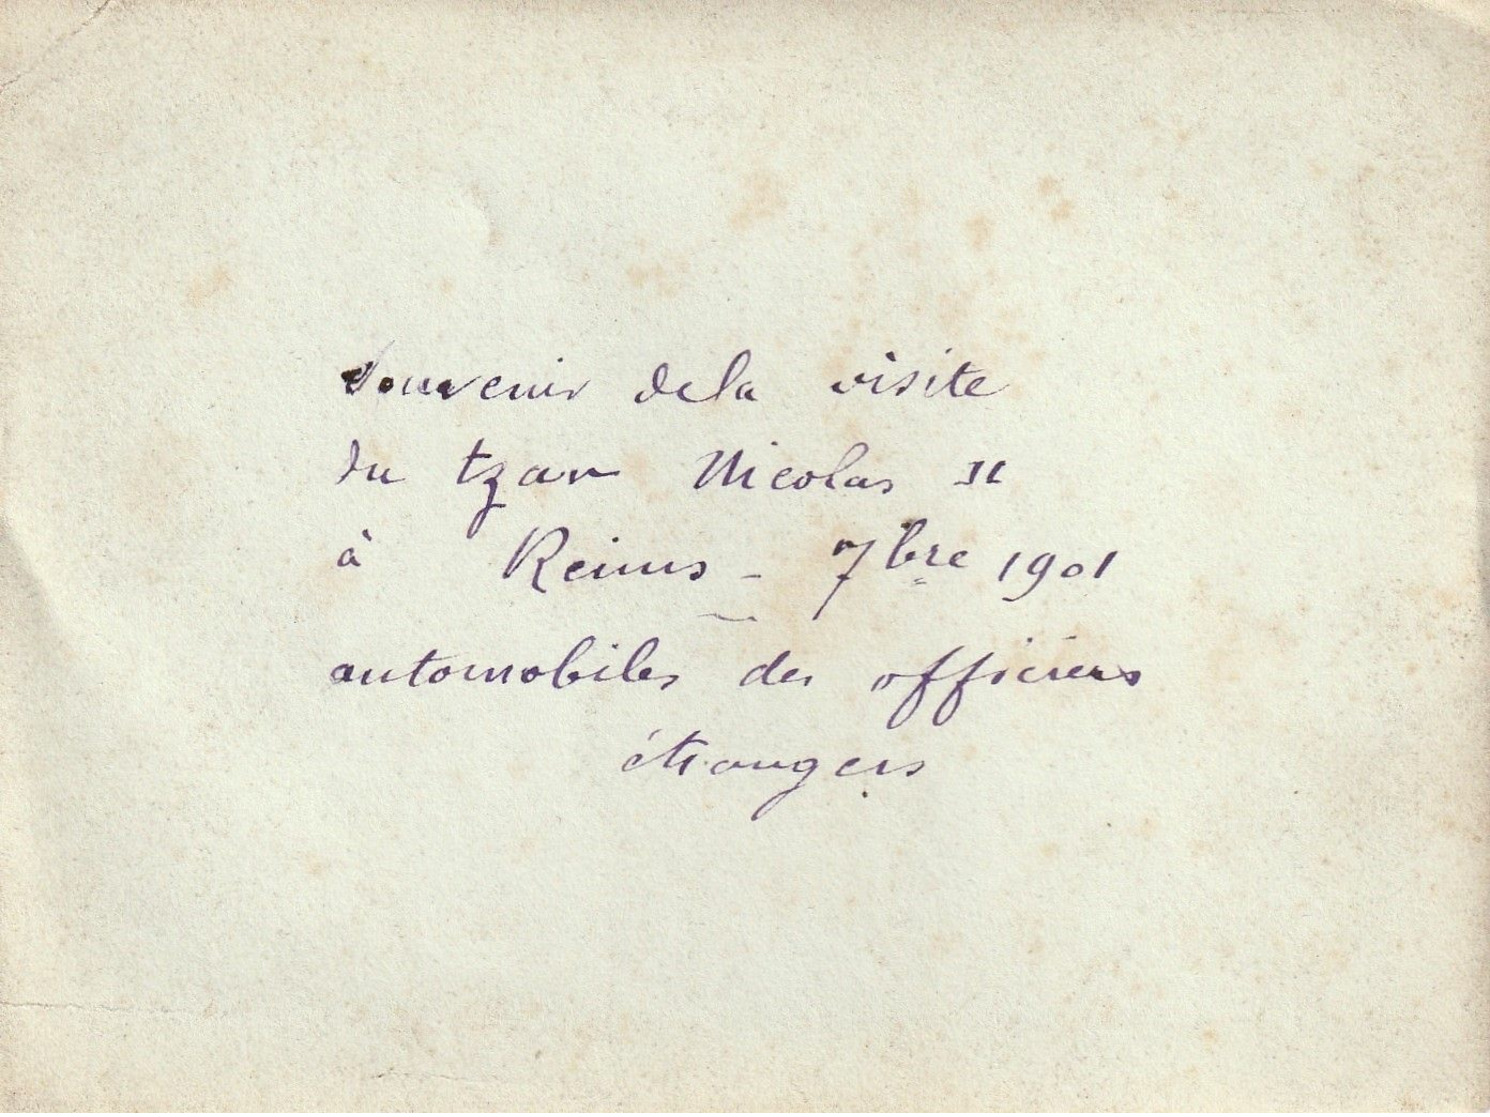 Souvenir de la visite
du tzar Nicolas II
à Reims - 7bre 1901
automobiles des officiers
étrangers